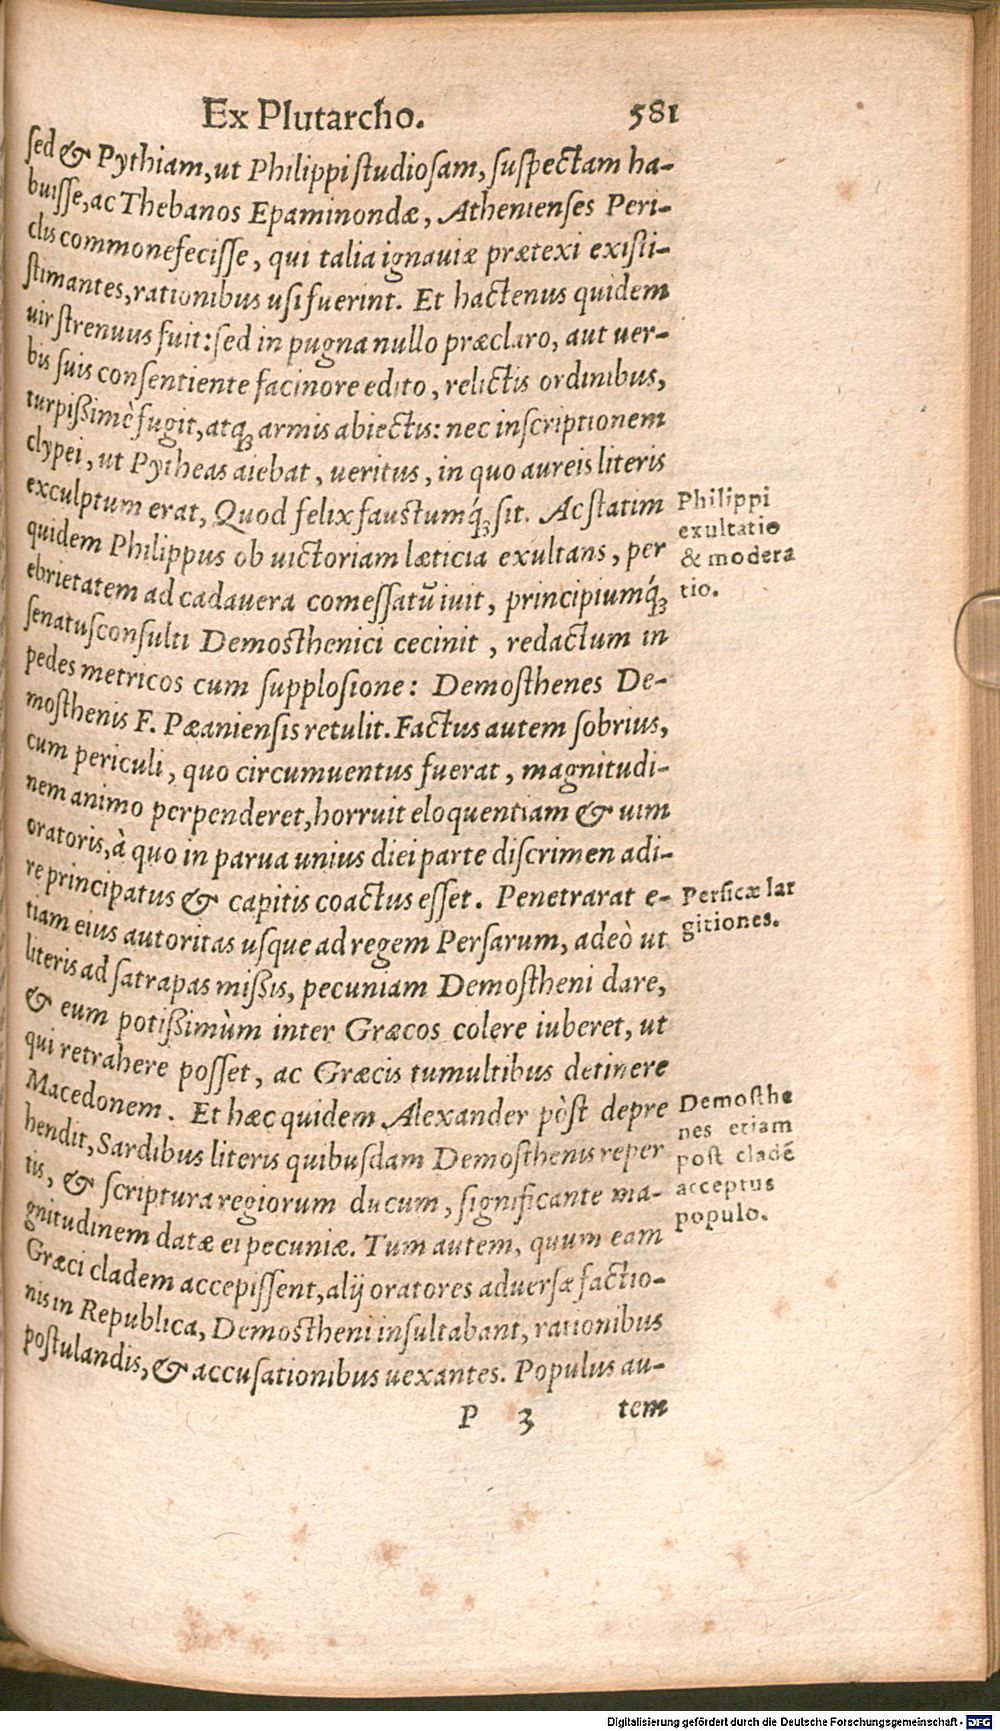 Ex Plutarcho. 581
sed & Pythiam, ut Philippi studiosam, suspectam ha-
buisse, ac Thebanos Epaminondæ, Athenienses Peri-
clis commonefecisse, qui talia ignauiæ prætexi existi-
stimantes, rationibus usi fuerint. Et hactenus quidem
uir strenuus fuit: sed in pugna nullo præclaro, aut uer-
bis suis consentiente facinore edito, relictis ordinibus,
turpißimè fugit, atq; armis abiectis: nec inscriptionem
clypei, ut Pytheas aiebat, ueritus, in quo aureis literis
exculptum erat, Quod felix faustumq́; sit. Ac statim
quidem Philippus ob uictoriam læticia exultans, per
ebrietatem ad cadauera comessatũ iuit, principiumq́;
senatusconsulti Demosthenici cecinit, redactum in
pedes metricos cum supplosione: Demosthenes De-
mosthenis F. Pæaniensis retulit. Factus autem sobrius,
cum periculi, quo circumuentus fuerat, magnitudi-
nem animo perpenderet, horruit eloquentiam & uim
oratoris, à quo in parua unius diei parte discrimen adi-
re principatus & capitis coactus esset. Penetrarat e-
tiam eius autoritas usque ad regem Persarum, adeò ut
literis ad satrapas mißis, pecuniam Demostheni dare,
& eum potißimùm inter Græcos colere iuberet, ut
qui retrahere posset, ac Græcis tumultibus detinere
Macedonem. Et hæc quidem Alexander pòst depre
hendit, Sardibus literis quibusdam Demosthenis reper
tis, & scriptura regiorum ducum, significante ma-
gnitudinem datæ ei pecuniæ. Tum autem, quum eam
Græci cladem accepissent, alij oratores aduersæ factio-
nis in Republica, Demostheni insultabant, rationibus
postulandis, & accusationibus uexantes. Populus au-
P 3 tem
Philippi
exultatio
& modera
tio.
Persicæ lar
gitiones.
Demosthe
nes etiam
post cladẽ
acceptus
populo.
Digitalisierung gefördert durch die Deutsche Forschungsgemeinschaft - DFG